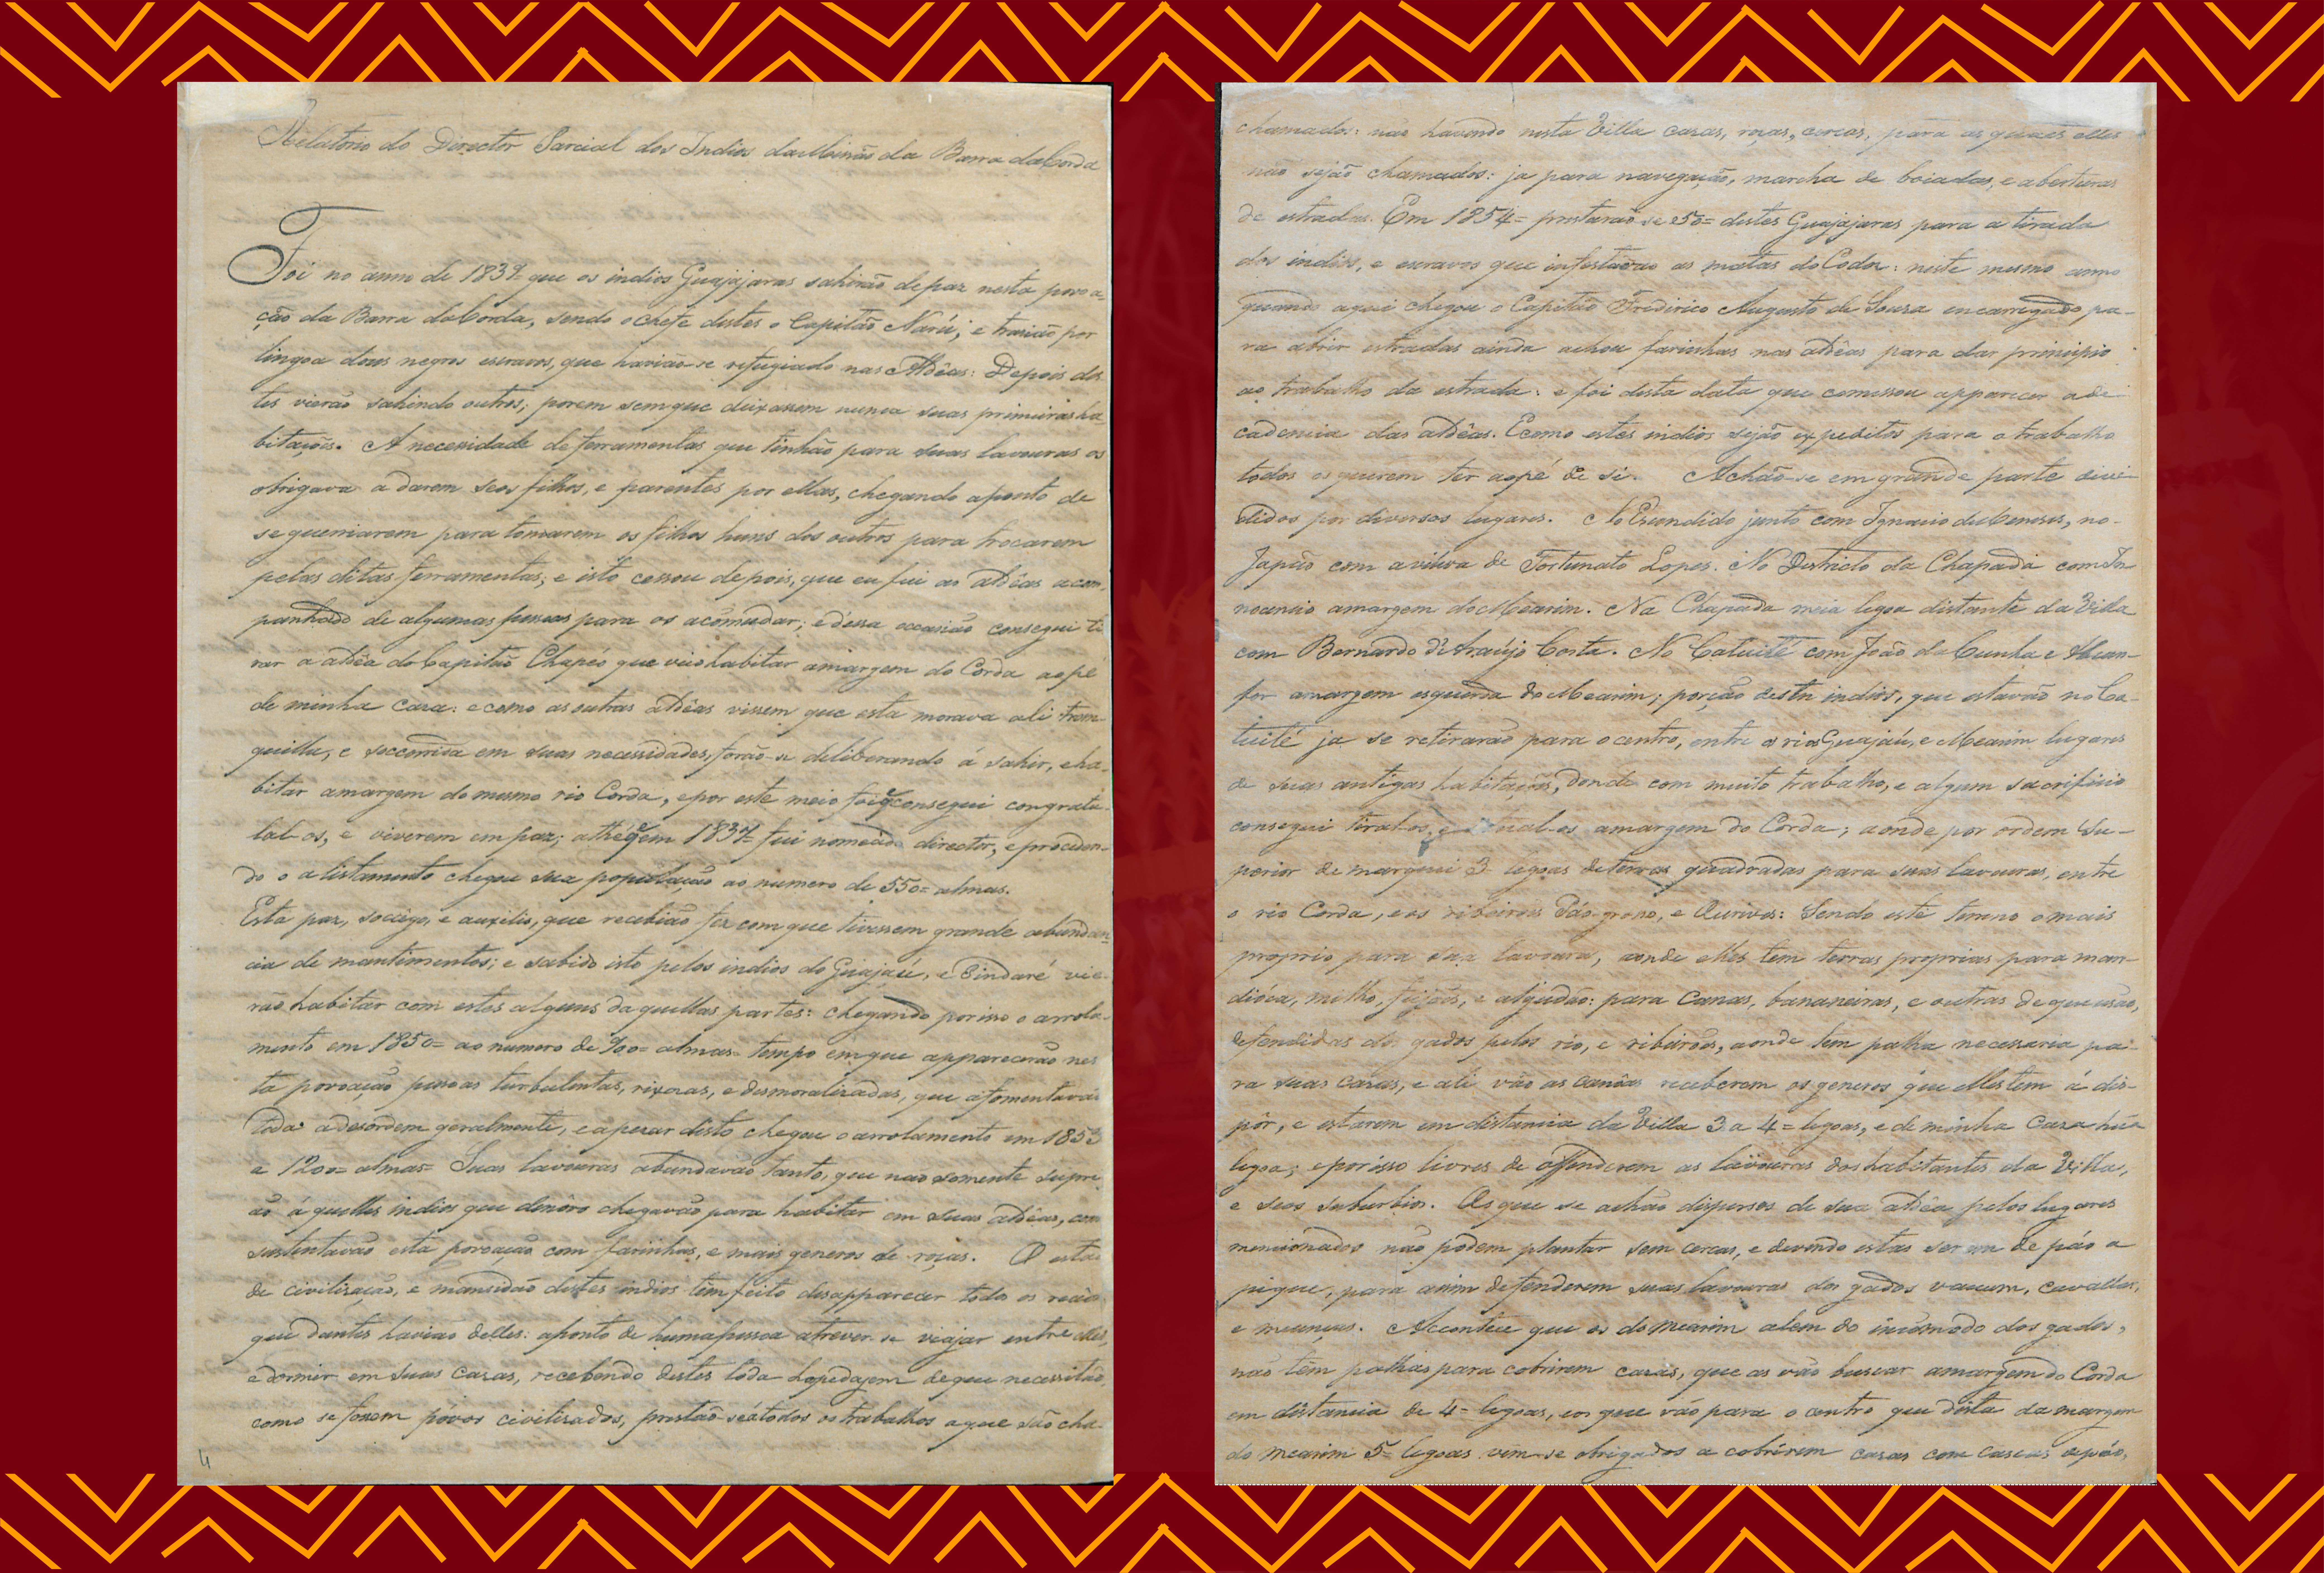 Relatorio do Director Parcial dos Indios da Missão da Barra do Corda
Foi no anno de 1839 que os indios Guajajaras sahirão de paz nesta povoa-
ção da Barra do Corda, sendo o chefe destes o Capitão Narú; e trazião por
lingoa dous negros escravos, que havião-se refugiado nas Aldêas: Depois des
tes vierão sahindo outros; porem sem que deixassem nunca suas primeiras ha
bitações. A necessidade de ferramentas que tinhão para suas lavouras os
obrigava a darem seos filhos, e parentes por ellas, chegando aponto de
se guerriarem para tomarem os filhos huns dos outros para trocarem
pelas ditas ferramentas; e isto cessou depois, que eu fui as aldêas acom-
panhado de algumas pessoas para os acomudar; e dessa occasião consegui ti
rar a aldêa do Capitão Chapéo que veio habitar amargem do Corda aopé
de minha casa: e como as outras aldêas vissem que esta morava ali tran-
quilla, e soccorrida em suas necessidades, forão-se deliberando á sahir, eha-
bitar amargem do mesmo rio Corda, epor este meio foi q consegui congrata-
lal-os, e viverem em paz; athé q em fui nomeado director, e proceden-
do o alistamento chegou sua população ao numero de 550= almas.
Esta paz, sociego, e auxilio, que recebião fez com que tivessem grande abundan-
cia de mantimentos; e sabido isto pelos indios do Guajaú, e Pindaré vie-
rão habitar com estes alguns daquellas partes: chegando porisso o arrola-
mento em 1850= ao numero de almas= tempo emque apparecerão nes
ta povoação pessoas turbulentas, rixosas, e desmoralisadas, que afomentavão
toda adesordem geralmente, e apezar disto chegou o arrolamento em
a 1200= almas= Suas lavouras abundavão tanto, que não somente supri-
ão á quelles indios que denôvo chegavão para habitar em suas aldêas, com
sustentavão esta povoação com farinhas, e mais generos de roças. O esta-
de civilisação, e mansidão destes indios têm feito desapparecer todo os receio
que dantes havião delles: aponto de huma pessoa atrever-se viajar entre elles,
e dormir em suas casas, recebendo destes toda hospedajem de que necessitão,
como se fossem póvos civilisados, prestão-se á todos os trabalhos aque são cha-
chamados: não havendo nesta Villa casas, roças, cercas, para as quaes elles
não sejão chamados: ja para navegação, marcha de boiadas, e aberturas
de estradas. Em 1854= prestarão-se 250= destes Guajajaras para a tirada
dos indios, e escravos que infestavão as matas do Codó: neste mesmo anno
quando aqui chegou o Capitão Frederico Augusto de Souza encarregado pa-
ra abrir estradas ainda achou farinhas nas aldêas para dar principio
ao trabalho da estrada: e foi desta data que comessou apparecer a de-
cadencia das aldêas. Ecomo estes indios sejão expeditos para o trabalho
todos os querem ter aopé de si. Achão-se em grande parte divi-
didos por diversos lugares. No Escondido junto com Ignacio de Meneses, no-
Japão com a viúva de Fortunato Lopes. No Districto da Chapada com In-
nocencio amargem do Mearim. Na Chapada meia legoa distante da Villa
com Bernardo d'Araujo Costa. No Catuité com João da Cunha e
amargem esquerda do Mearim; porção destes indios, que estavão no Ca-
tuité ja se retirarão para o centro, entre os rios Guajaú, e Mearim lugares
de suas antigas habitações, donde com muito trabalho, e algum sacrificio
consegui tiral-os, e amargem do Corda; aonde por ordem Su-
perior demarquei 3 legoas de terras quadradas para suas lavouras, entre
o rio Corda, e os ribeirões Páo-grosso, e Ourives: Sendo este terreno omais
proprio para sua lavoura, aonde elles tem terras proprias para man-
dióca, milho, feijões, e algudão: para canas, bananeiras, e outras de que usão,
defendidas dos gados pelos rio, e ribeirões, aonde tem palha necessaria pa-
ra suas casas, e ali vão as canôas receberem os generos que elles tem á dis-
pôr, e estarem em distancia da Villa 3 a 4= legoas, e de minha Casa húa
legoa; e porisso livres de offenderem as lavouras dos habitantes da Villa,
e seos suburbios. Os que se achão dispersos de sua aldêa pelos lugares
mencionados não podem plantar sem cercas, e devendo estas serem de páo a
pique, para assim defenderem suas lavouras dos gados vacum, cavallar,
e meunças. Acontece que os do Mearim alem do incomodo dos gados,
não têm palhas para cobrirem casas, que as vão buscar amargem do Corda
em distancia de 4= legoas, eos que vão para o centro que dista da margem
do Mearim 5= legoas vem-se obrigados a cobrirem casas com cascas de páo,